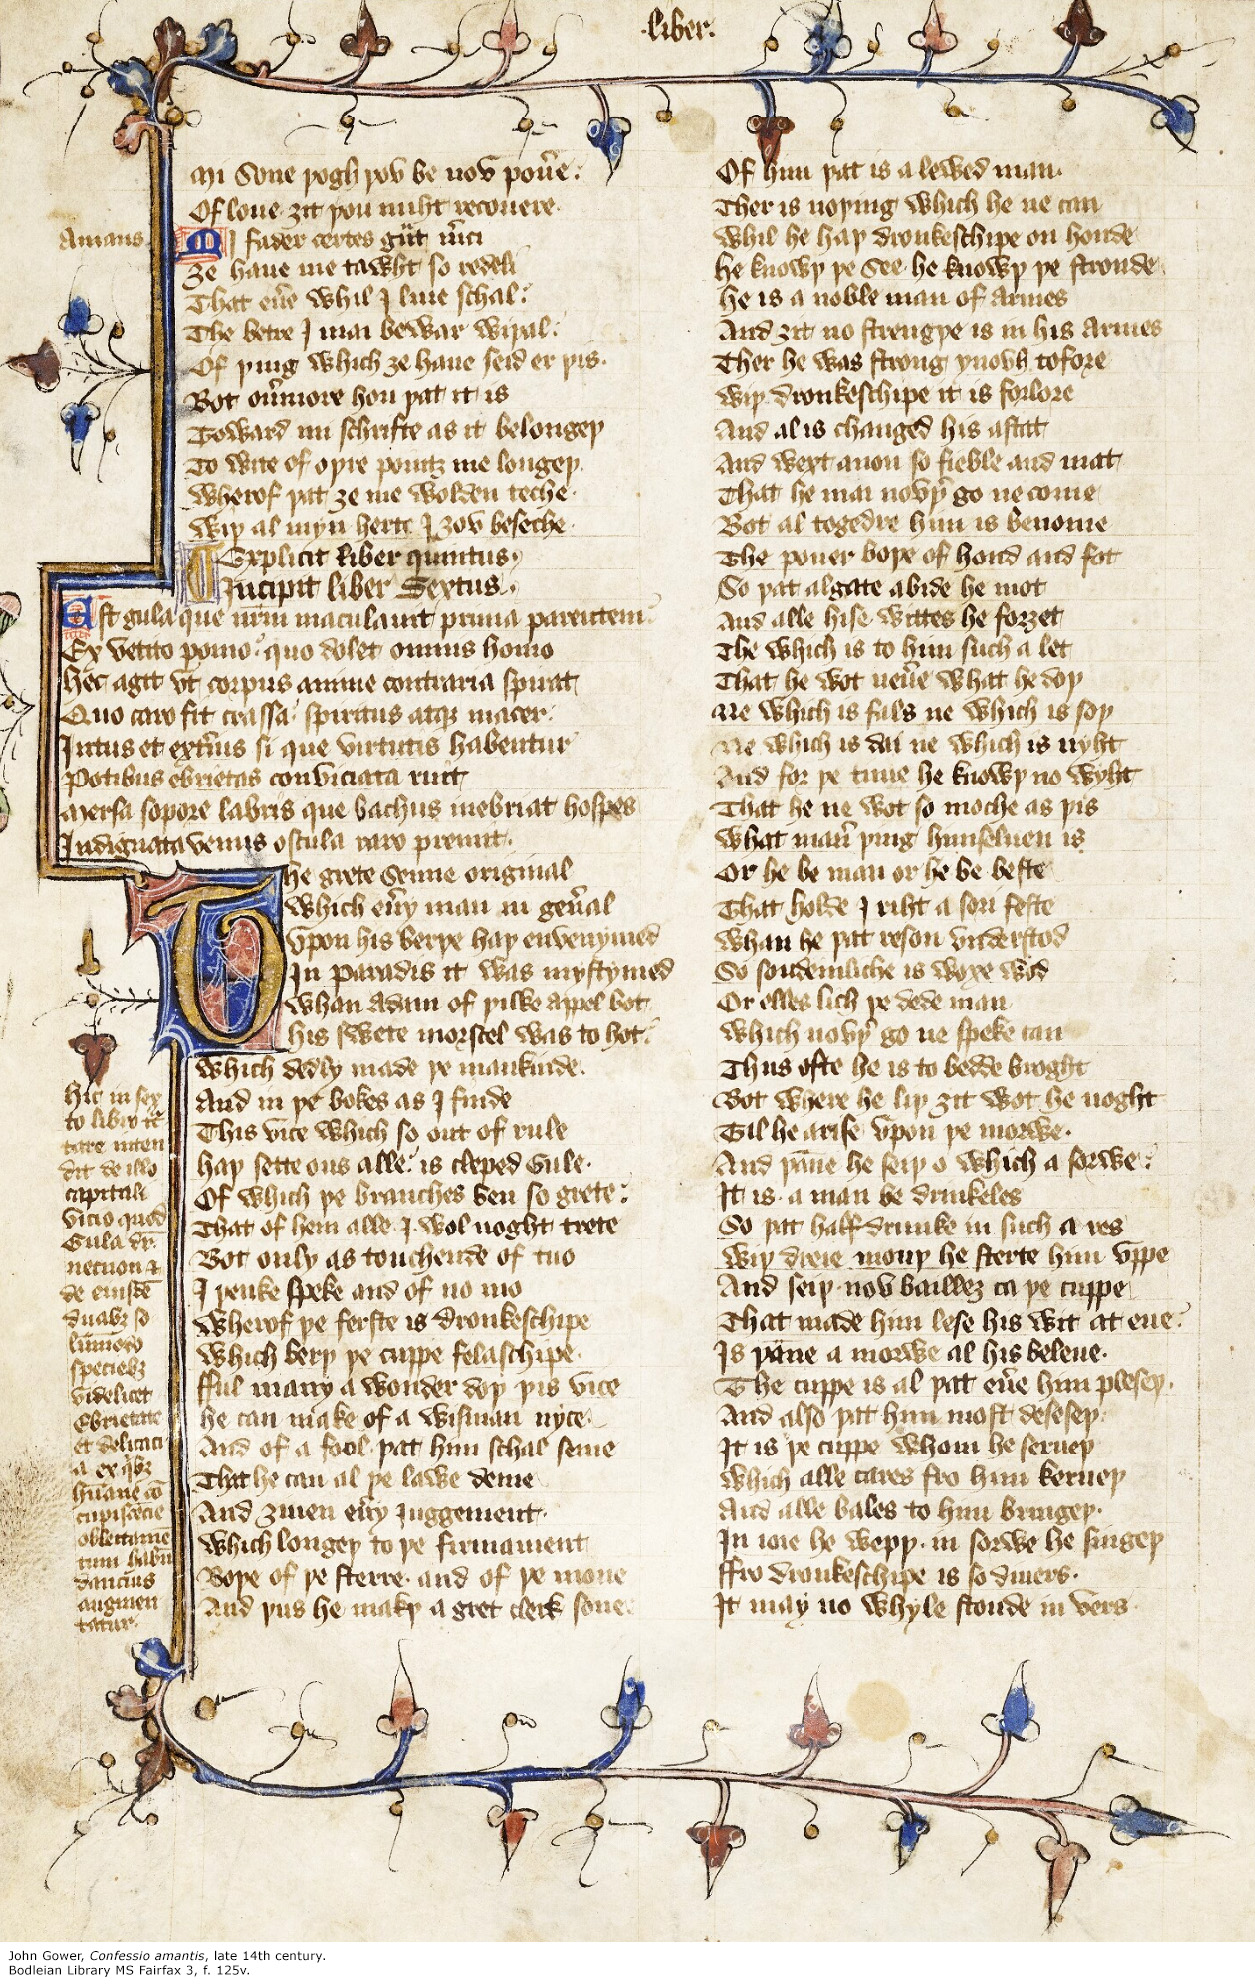 ·liber·
Mi Sone þogh þou be nou pouere:
Of loue· ȝit þou miht recouere·
Amans
MI fader certes grant merci
ȝe haue me tawht so redeli
That euere whil I liue schal:
The betre I mai bewar wiþal:
Of þing which ȝe haue seid er þis·
Bot ouermore hou þat it is
Toward mi schrifte as it belongeþ
To wite of oþre pointz me longeþ·
Wherof þat ȝe me wolden teche·
Wiþ al myn herte I ȝou beseche·
Explicit liber quintus·
Incipit liber Sextus·
Est gula que nostrum maculauit prima parentem:
Ex vetito pomo: quo dolet omnis homo
Hec agit vt corpus anime contraria spirat
Quo caro fit crassa· spiritus atque macer·
Intus et exterius si que virtutis habentur
Potibus ebrietas conuiciata ruit
Mersa sopore labris que bachus inebriat hospes
Indignata venus oscula raro premit·
The grete Senne original
Which euery man in general
Vpon his berþe haþ envenymed
In Paradis it was mystymed
Whan Adam of þilke appel bot
His swete morscel was to hot:
Which dedly made þe mankinde·
And in þe bokes as I finde
This vice which so out of rule
Haþ sette ous alle: is cleped Gule·
Of which þe branches ben so grete:
That of hem alle I wol noght trete
Bot only as touchende of tuo
I þenke speke and of no mo
Wherof þe ferste is dronkeschipe
Which berþ þe cuppe felaschipe·
fful many a wonder doþ þis vice
He can make of a wisman nyce·
And of a fool þat him schal seme
That he can al þe lawe deme
And ȝiuen euery juggement·
Which longeþ to þe firmament
Boþe of þe sterre· and of þe mone
And þus he makþ a gret clerk sone:
Hic in sex
to libro tra
ctare inten
dit de illo
capitali
vicio quod
Gula dicitur
necnon et
de eiusdem
duabus so
lummodo
speciebus
videlicet
Ebrietate
et delicaci
a ex quibus
humane con
cupiscencie
oblectamen
tum habun
dancius
augmen
tatur·
Of him þat is a lewed man·
Ther is noþing which he ne can
Whil he haþ dronkeschipe on honde
He knowþ þe see· he knowþ þe stronde
He is a noble man of armes
And ȝit no strengþe is in his armes
Ther he was strong ynouh tofore
Wiþ dronkeschipe it is forlore
And al is changed his astat
And wext anon so fieble and mat
That he mai nouþer go ne come
Bot al togedre him is benome
The pouer boþe of hond and fot
So þat algate abide he mot
And alle hise wittes he forȝet
The which is to him such a let
That he wot neuere what he doþ
Ne which is fals ne which is soþ
Ne which is dai ne which is nyht
And for þe time he knowþ no wyht
That he ne wot so moche as þis
What maner þing himseluen is
Or he be man or he be beste
That holde I riht a sori feste
Whan he þat reson vnderstod
So soudeinliche is woxe wod
Or elles lich þe dede man
Which nouþer go ne speke can
Thus ofte he is to bedde broght
Bot where he liþ ȝit wot he noght
Til he arise vpon þe morwe·
And þanne he seiþ o which a sorwe:
It is· a man be drinkeles
So þat halfdrunke in such a res
Wiþ dreie mouþ he sterte him vppe
And seiþ· nou baillez ça þe cuppe
That made him lese his wit at eue:
Is þanne a morwe al his beleue·
The cuppe is al þat euere him pleseþ·
And also þat him most deseseþ·
It is þe cuppe whom he serueþ
Which alle cares fro him kerueþ
And alle bales to him bringeþ·
In ioie he wepþ· in sorwe he singeþ
ffro dronkeschipe is so diuers·
It may no whyle stonde in vers·
John Gower, Confessio amantis, late 14th century.
Bodleian Library MS Fairfax 3, f. 125v.